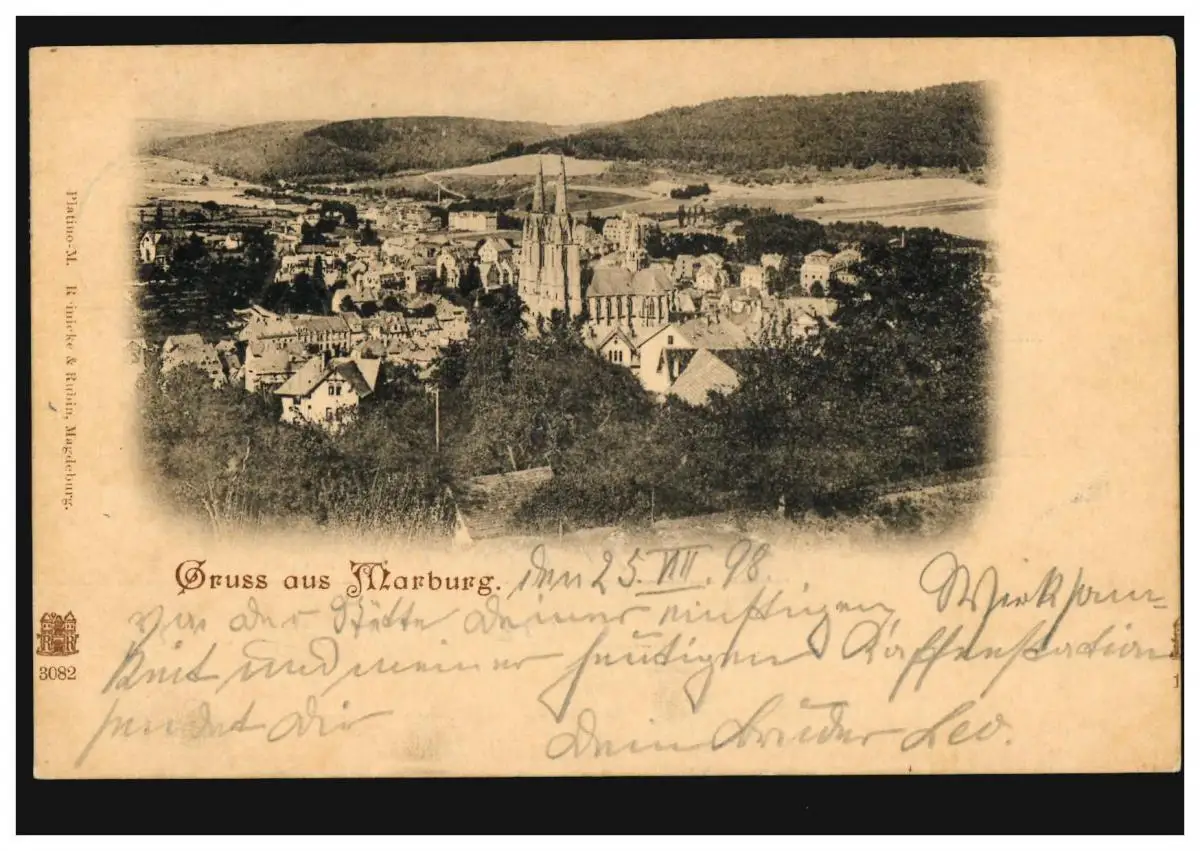 Platino-M. Reinicke & Rubin, Magdeburg.
Gruss aus Marburg.
den 25. VIII. 98.
Von der Stätte deiner einstigen Wirksam-
keit und meiner heutigen Kaffeestation
sendet Dir Dein Bruder Leo.
R R
3082
1